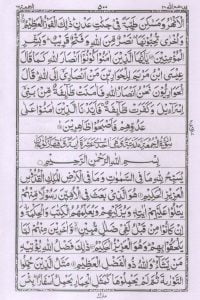 ٥٠٠
الْاَنْهٰرُ وَمَسٰكِنَ طَيِّبَةً فِيْ جَنّٰتِ عَدْنٍ ذٰلِكَ الْفَوْزُ الْعَظِيْمُ
وَاُخْرٰى تُحِبُّوْنَهَا نَصْرٌ مِّنَ اللّٰهِ وَفَتْحٌ قَرِيْبٌ وَبَشِّرِ
الْمُؤْمِنِيْنَ يٰٓاَيُّهَا الَّذِيْنَ اٰمَنُوْا كُوْنُوْٓا اَنْصَارَ اللّٰهِ كَمَا قَالَ
عِيْسَى ابْنُ مَرْيَمَ لِلْحَوَارِيّٖنَ مَنْ اَنْصَارِيْٓ اِلَى اللّٰهِ
قَالَ الْحَوَارِيُّوْنَ نَحْنُ اَنْصَارُ اللّٰهِ فَاٰمَنَتْ طَّآئِفَةٌ مِّنْۢ بَنِيْٓ
اِسْرَآءِيْلَ وَكَفَرَتْ طَّآئِفَةٌ فَاَيَّدْنَا الَّذِيْنَ اٰمَنُوْا عَلٰى
عَدُوِّهِمْ فَاَصْبَحُوْا ظٰهِرِيْنَ
بِسْمِ اللّٰهِ الرَّحْمٰنِ الرَّحِيْمِ
يُسَبِّحُ لِلّٰهِ مَا فِي السَّمٰوٰتِ وَمَا فِي الْاَرْضِ الْمَلِكِ الْقُدُّوْسِ
الْعَزِيْزِ الْحَكِيْمِ هُوَ الَّذِيْ بَعَثَ فِي الْاُمِّيّٖنَ رَسُوْلًا مِّنْهُمْ
يَتْلُوْا عَلَيْهِمْ اٰيٰتِهٖ وَيُزَكِّيْهِمْ وَيُعَلِّمُهُمُ الْكِتٰبَ وَالْحِكْمَةَ وَ
اِنْ كَانُوْا مِنْ قَبْلُ لَفِيْ ضَلٰلٍ مُّبِيْنٍ وَّاٰخَرِيْنَ مِنْهُمْ لَمَّا
يَلْحَقُوْا بِهِمْ وَهُوَ الْعَزِيْزُ الْحَكِيْمُ ذٰلِكَ فَضْلُ اللّٰهِ يُؤْتِيْهِ
مَنْ يَّشَآءُ وَاللّٰهُ ذُو الْفَضْلِ الْعَظِيْمِ مَثَلُ الَّذِيْنَ حُمِّلُوا
التَّوْرٰىةَ ثُمَّ لَمْ يَحْمِلُوْهَا كَمَثَلِ الْحِمَارِ يَحْمِلُ اَسْفَارًا بِئْسَ